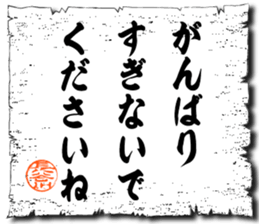 がんばり
すぎないで
くださいね